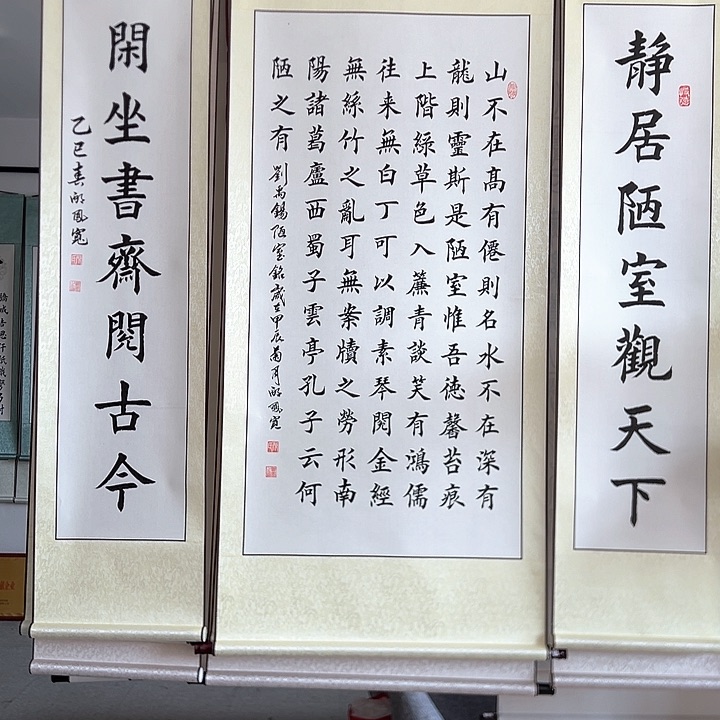 靜居陋室觀天下
山不在髙有僊則名水不在深有
龍則靈斯是陋室惟吾徳馨苔痕
上階綠草色入簾青談笑有鴻儒
往来無白丁可以調素琴閱金經
無絲竹之亂耳無案牘之勞形南
陽諸葛廬西蜀子雲亭孔子云何
陋之有 劉禹錫陋室銘歲在甲辰菊月
閑坐書齋閱古今
乙巳春